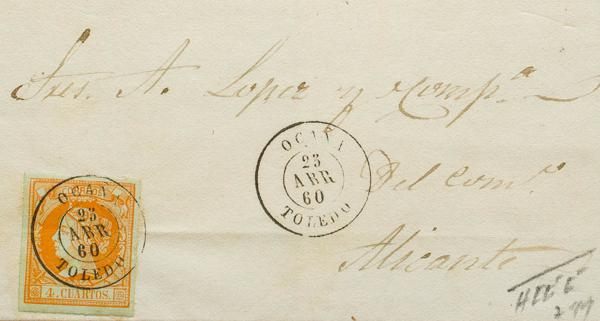 Sres. A. Lopez y Compª
Del Comº.
Alicante
OCAÑA
23
ABR
60
TOLEDO
CORREOS
OCAÑA
23
ABR
60
TOLEDO
4 CUARTOS.